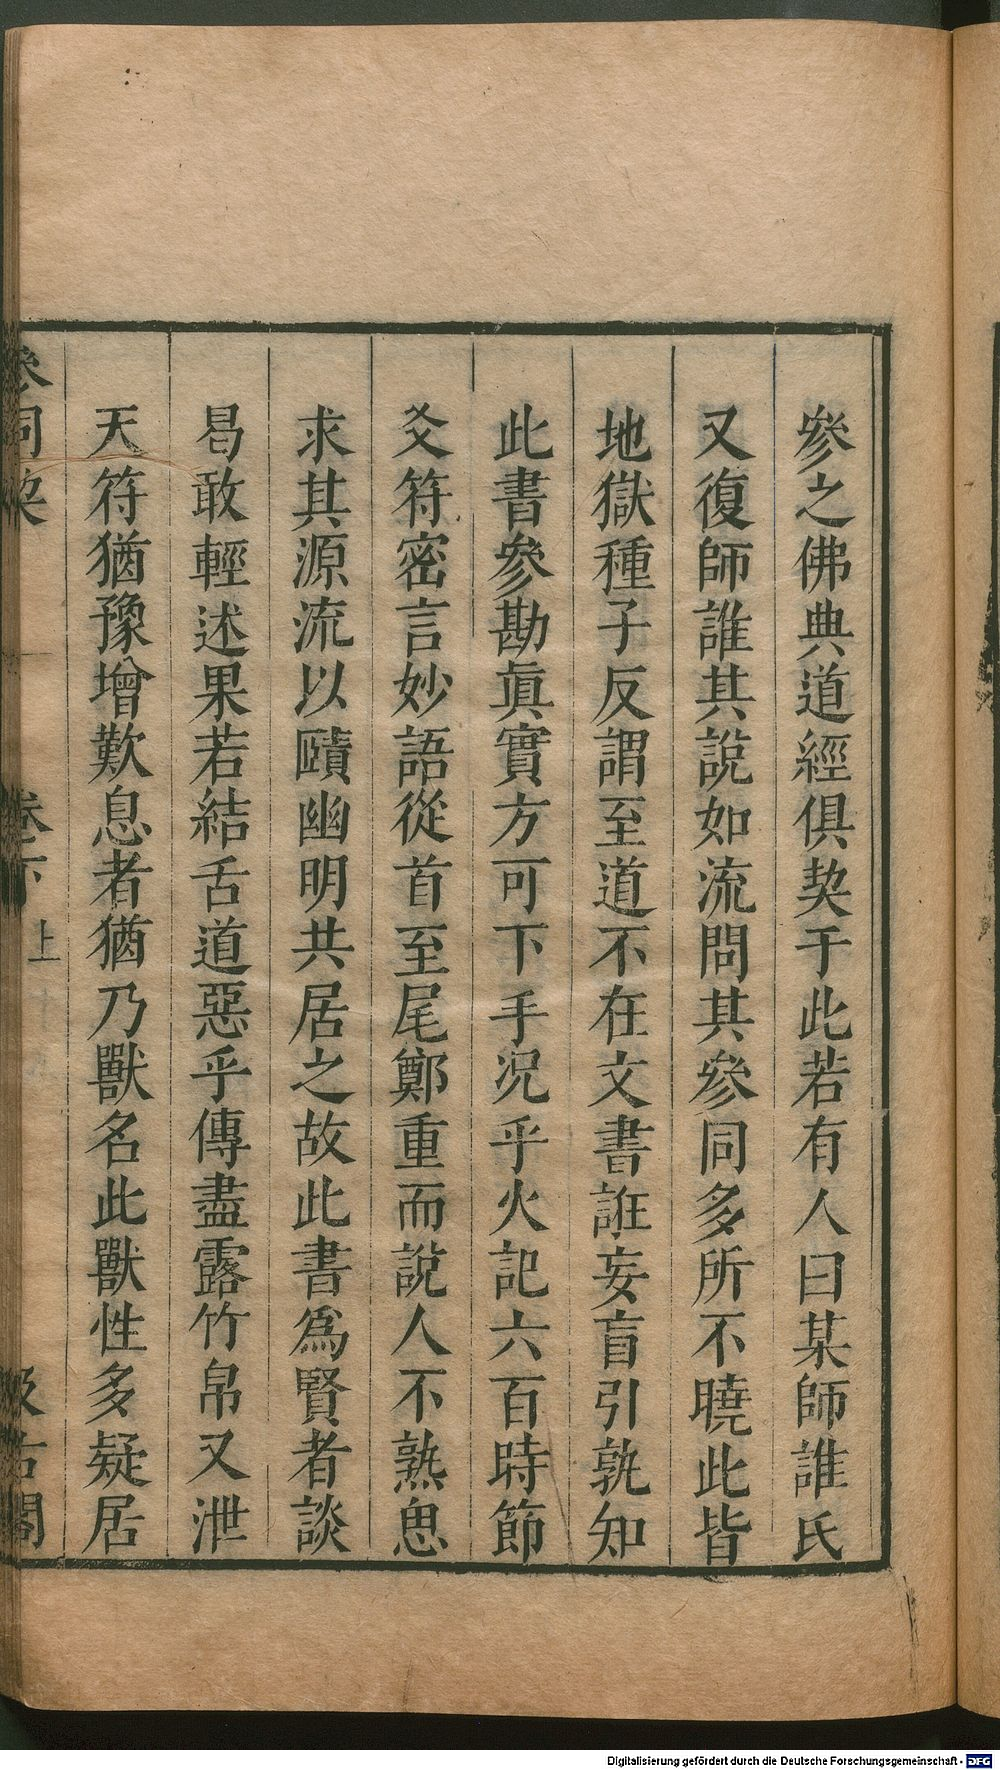 參之佛典道經俱契于此若有人曰某師誰氏
又復師誰其說如流問其參同多所不曉此皆
地獄種子反謂至道不在文書誑妄盲引孰知
此書參勘眞實方可下手況乎火記六百時節
爻符密言妙語從首至尾鄭重而說人不熟思
求其源流以賾幽明共居之故此書爲賢者談
曷敢輕述果若結舌道惡乎傳盡露竹帛又泄
天符猶豫增歎息者猶乃獸名此獸性多疑居
參同契 卷下 上 汲古閣
Digitalisierung gefördert durch die Deutsche Forschungsgemeinschaft - DFG